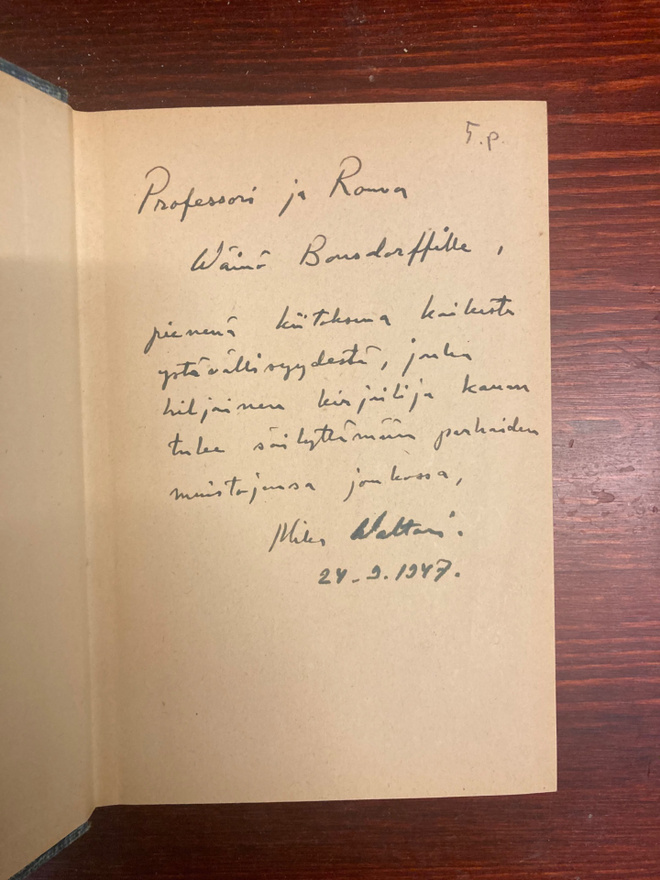 5.p.
Professori ja Rouva
Wäinö Bonsdorffille,
pienenä kiitoksena kaikesta
ystävällisyydestä, jonka
hiljainen kirjailija kauan
tulee säilyttämään parhaiden
muistojensa joukossa,
Mika Waltari.
24.9.1947.